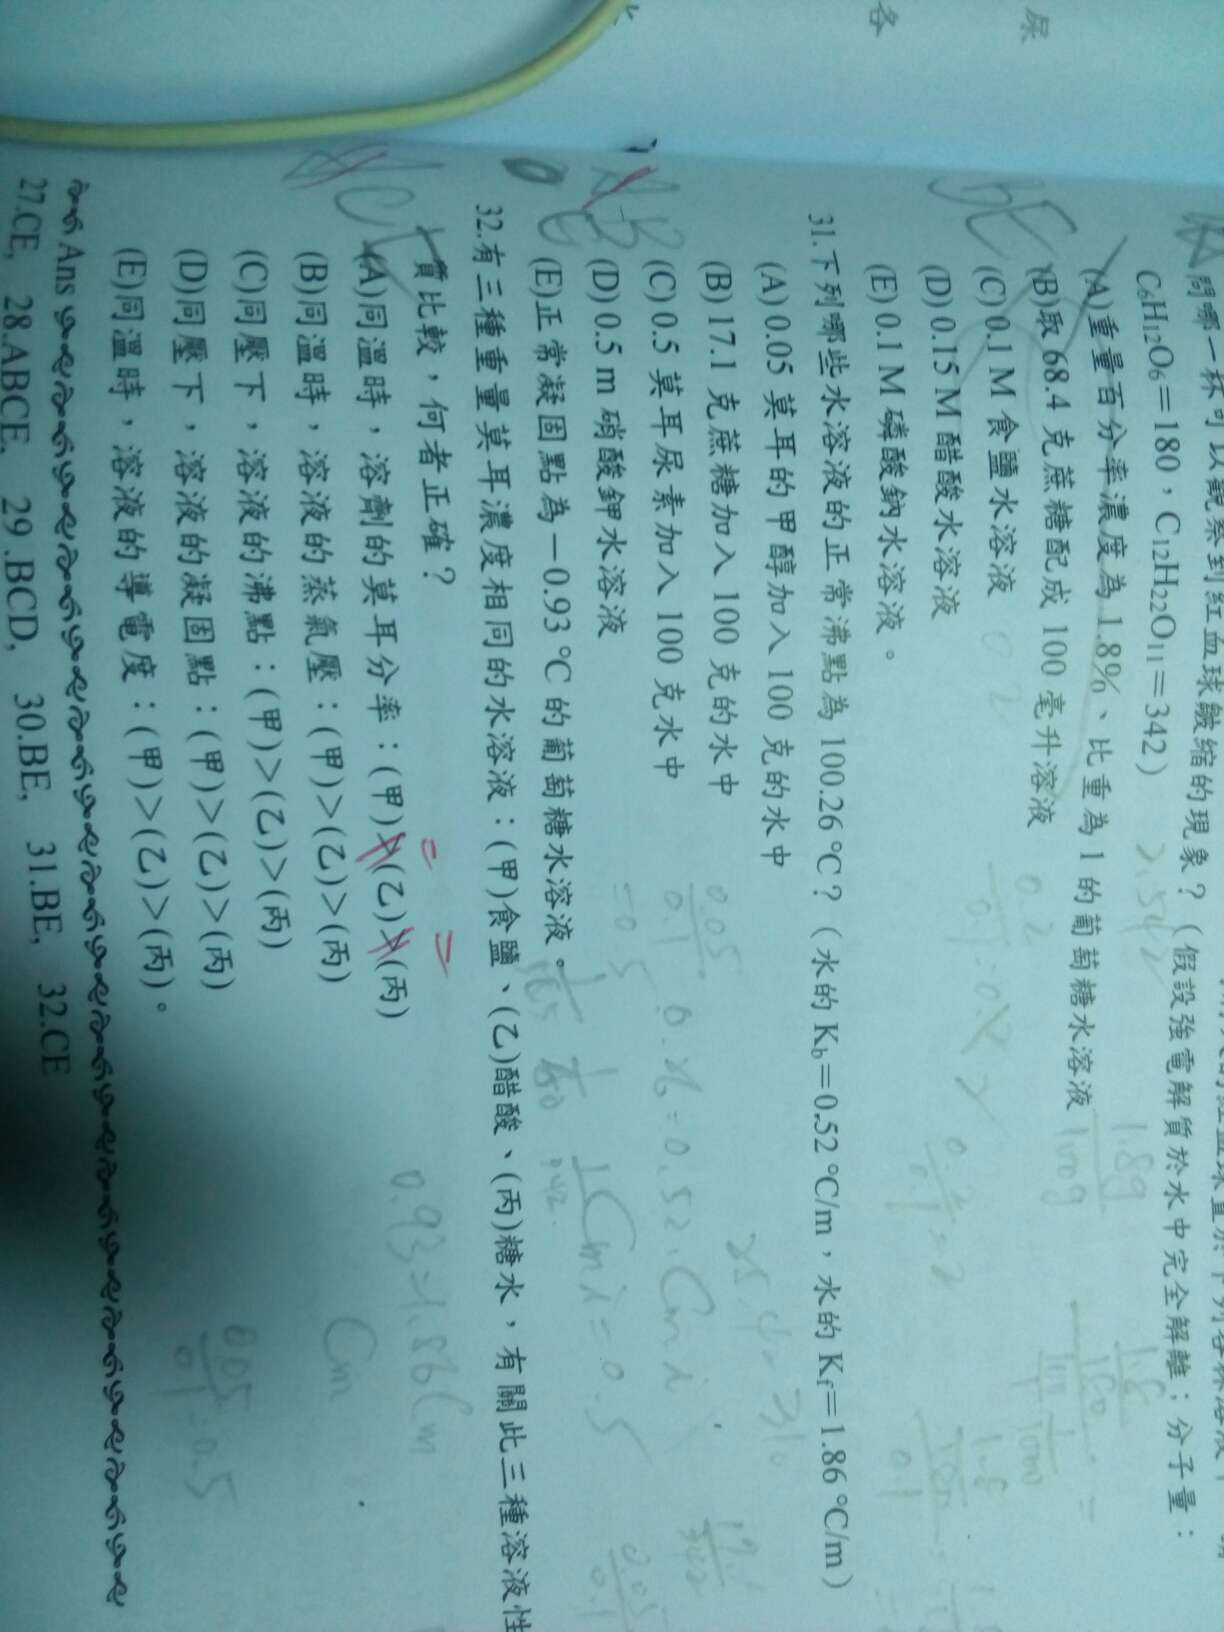 尿
各
問哪一杯可以觀察到紅血球皺縮的現象？（假設強電解質於水中完全解離；分子量：
C₆H₁₂O₆＝180，C₁₂H₂₂O₁₁＝342）
(A)重量百分率濃度為 1.8%、比重為 1 的葡萄糖水溶液
(B)取 68.4 克蔗糖配成 100 毫升溶液
(C)0.1 M 食鹽水溶液
(D)0.15 M 醋酸水溶液
(E)0.1 M 磷酸鈉水溶液。
31.下列哪些水溶液的正常沸點為 100.26 ℃？（水的 Kb＝0.52 ℃/m，水的 Kf＝1.86 ℃/m）
(A)0.05 莫耳的甲醇加入 100 克的水中
(B)17.1 克蔗糖加入 100 克的水中
(C)0.5 莫耳尿素加入 100 克水中
(D)0.5 m 硝酸鉀水溶液
(E)正常凝固點為－0.93 ℃的葡萄糖水溶液。
32.有三種重量莫耳濃度相同的水溶液：(甲)食鹽、(乙)醋酸、(丙)糖水，有關此三種溶液性
質比較，何者正確？
(A)同溫時，溶劑的莫耳分率：(甲)>(乙)>(丙)
= =
(B)同溫時，溶液的蒸氣壓：(甲)>(乙)>(丙)
(C)同壓下，溶液的沸點：(甲)>(乙)>(丙)
(D)同壓下，溶液的凝固點：(甲)>(乙)>(丙)
(E)同溫時，溶液的導電度：(甲)>(乙)>(丙)。
Ans
27.CE, 28.ABCE, 29.BCD, 30.BE, 31.BE, 32.CE
0.2
0.05
0.1
0.26=0.52·Cm i
Cm i=0.5
0.93=1.86Cm
Cm
0.05
0.1
=0.5
1.8g
100g